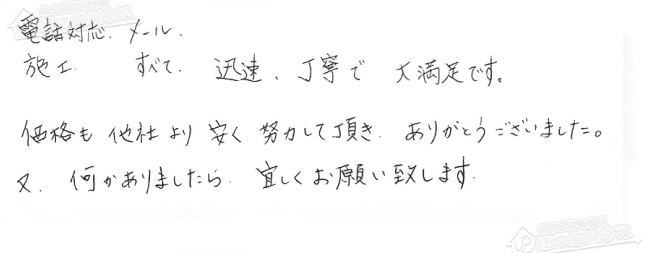 電話対応.メール.
施工 すべて. 迅速、丁寧で 大満足です。
価格も 他社より 安く 努力して頂き. ありがとうございました。
又. 何かありましたら. 宜しくお願い致します.